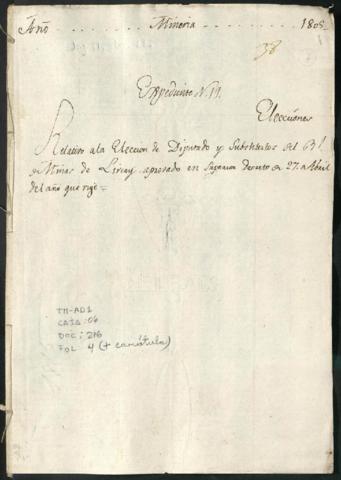 Año . . . . . . . . . . Mineria . . . . . . . . . . 1805
38
Expediente N. 11.
Elecciones
Relativo ala Eleccion de Diputado y Substitutos del
Minas de Lircay aprobado en Superior decreto de 27. de Abril
del año que rige =
TM-AD1
CAJA: 06
DOC: 216
FOL 4 (+ carátula)